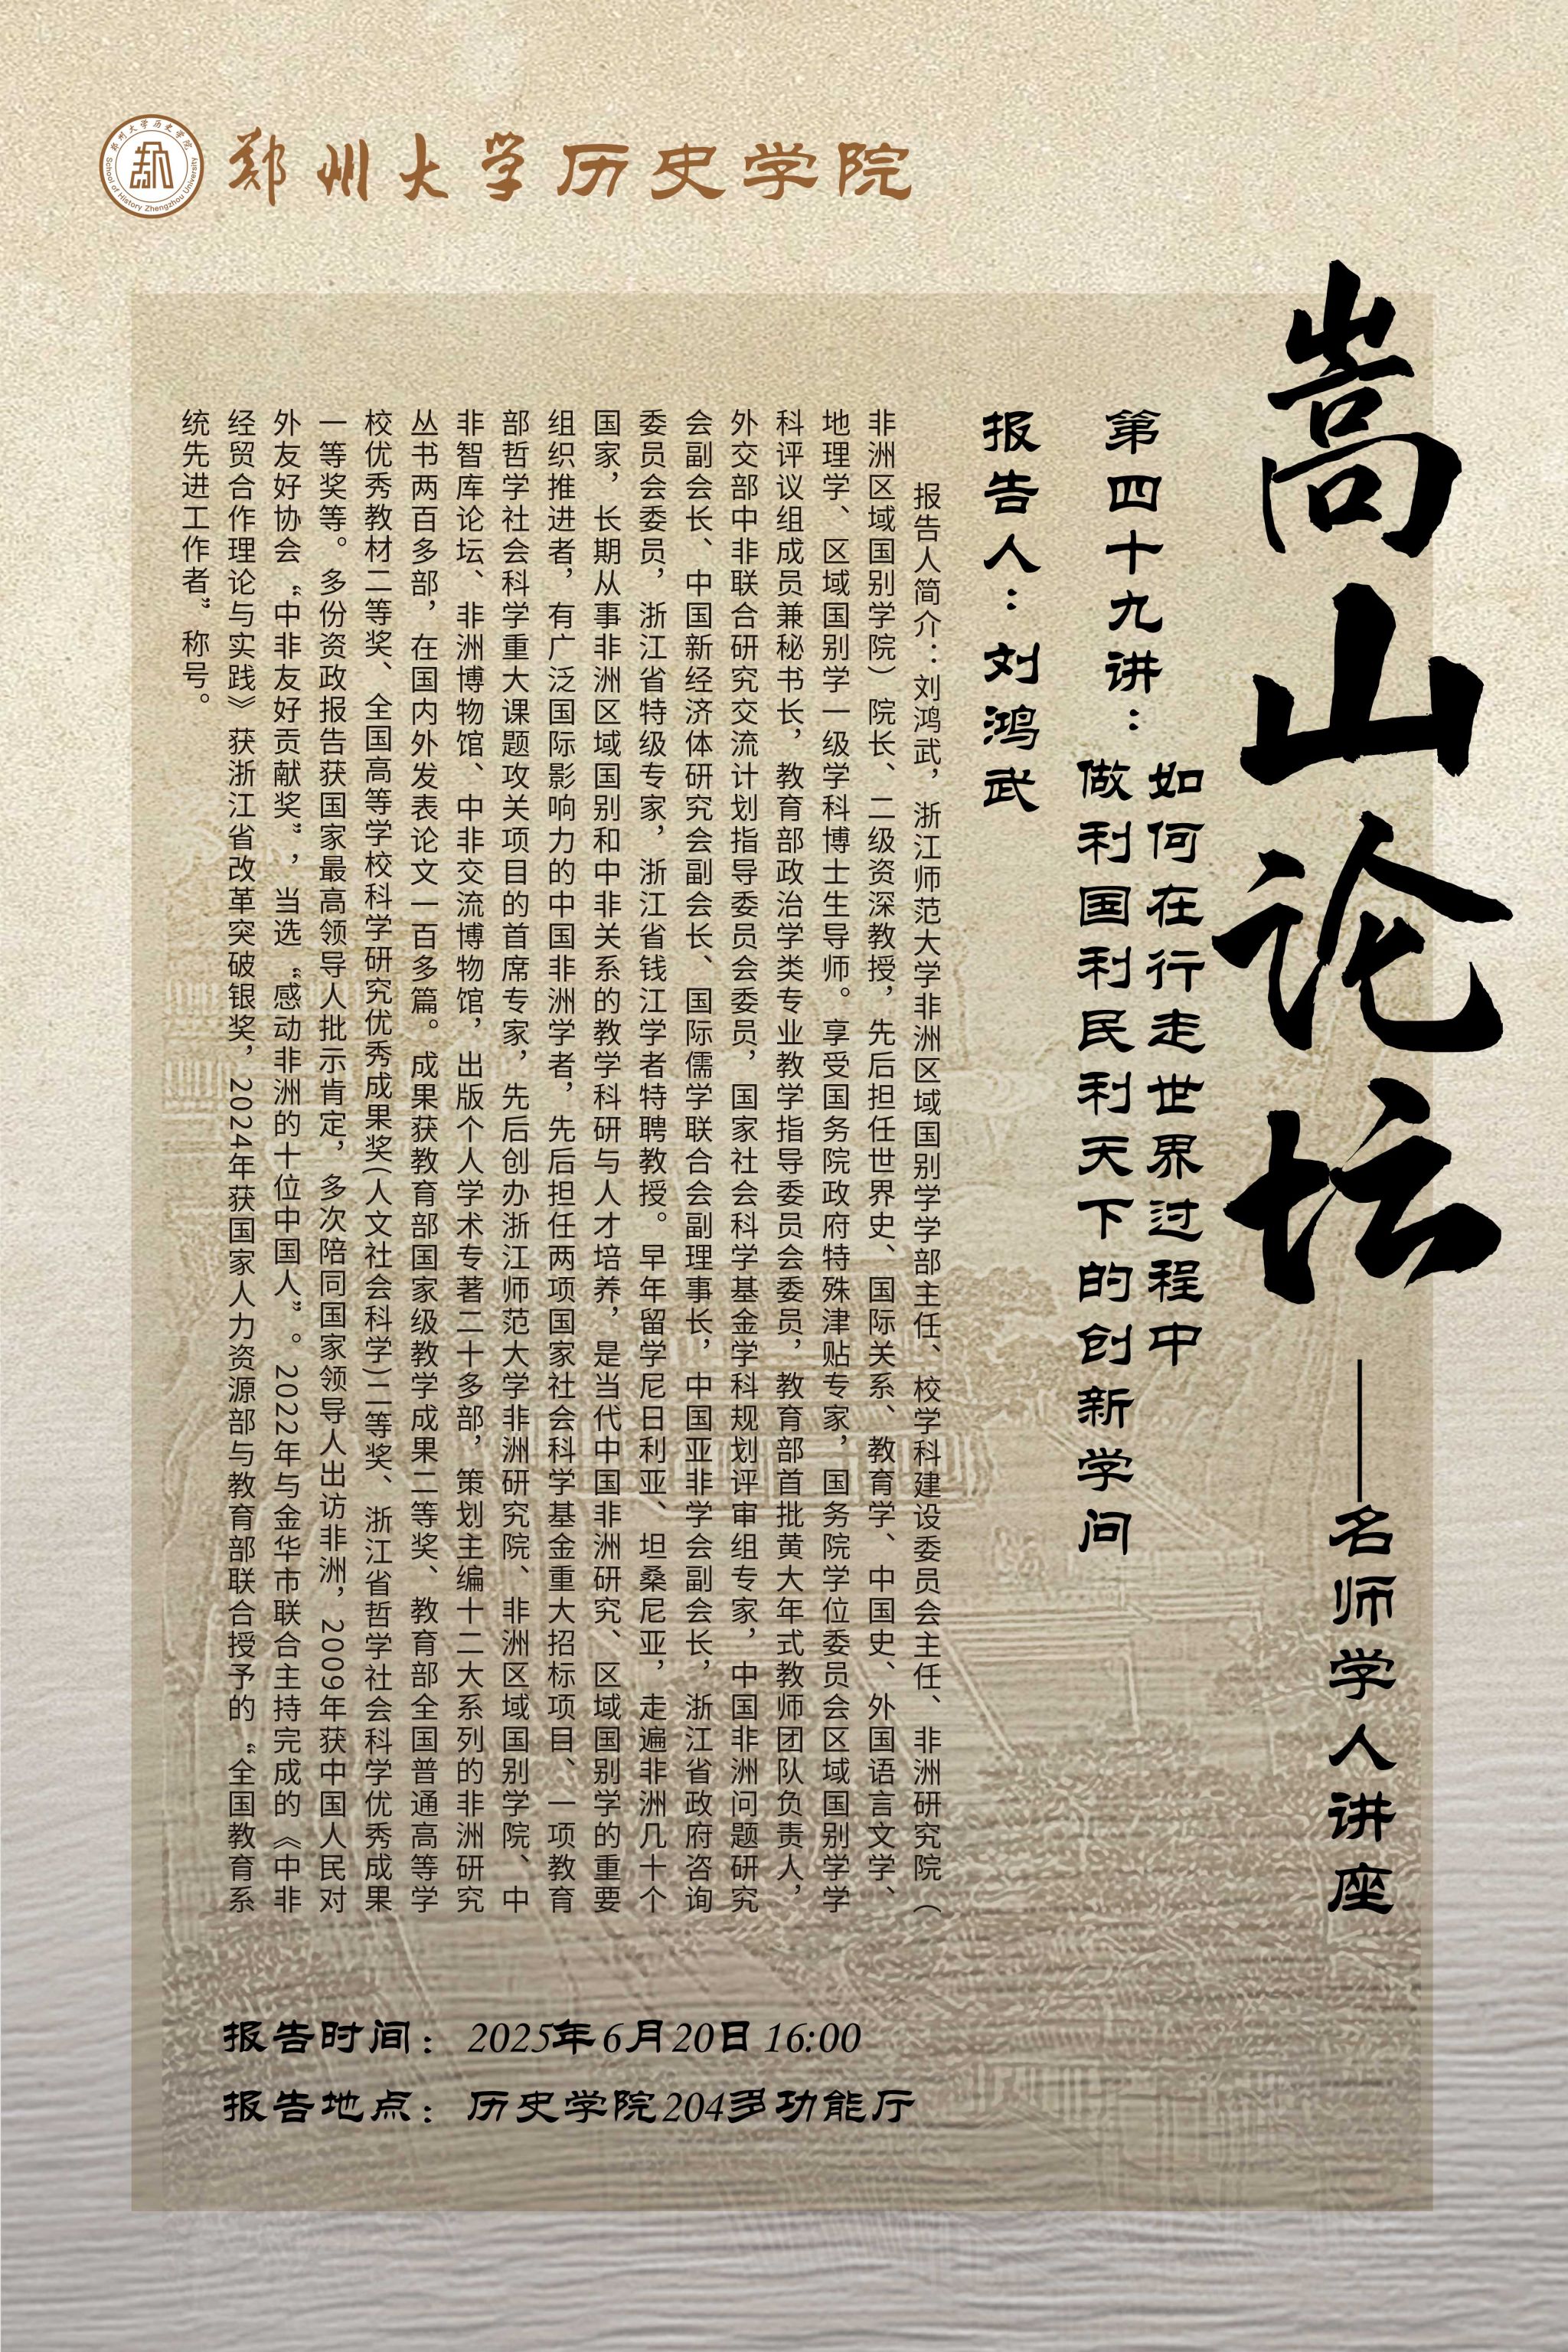 郑州大学历史学院
School of History Zhengzhou University
郑州大学历史学院
嵩山论坛
——名师学人讲座
第四十九讲：
如何在行走世界过程中
做利国利民利天下的创新学问
报告人：刘鸿武
报告人简介：刘鸿武，浙江师范大学非洲区域国别学学部主任、校学科建设委员会主任、非洲研究院（
非洲区域国别学院）院长、二级资深教授，先后担任世界史、国际关系、教育学、中国史、外国语言文学、
地理学、区域国别学一级学科博士生导师。享受国务院政府特殊津贴专家，国务院学位委员会区域国别学学
科评议组成员兼秘书长，教育部政治学类专业教学指导委员会委员，教育部首批黄大年式教师团队负责人，
外交部中非联合研究交流计划指导委员会委员，国家社会科学基金学科规划评审组专家，中国非洲问题研究
会副会长、中国新经济体研究会副会长、国际儒学联合会副理事长，中国亚非学会副会长，浙江省政府咨询
委员会委员，浙江省特级专家，浙江省钱江学者特聘教授。早年留学尼日利亚、坦桑尼亚，走遍非洲几十个
国家，长期从事非洲区域国别和中非关系的教学科研与人才培养，是当代中国非洲研究、区域国别学的重要
组织推进者，有广泛国际影响力的中国非洲学者，先后担任两项国家社会科学基金重大招标项目、一项教育
部哲学社会科学重大课题攻关项目的首席专家，先后创办浙江师范大学非洲研究院、非洲区域国别学院、中
非智库论坛、非洲博物馆、中非交流博物馆，出版个人学术专著二十多部，策划主编十二大系列的非洲研究
丛书两百多部，在国内外发表论文一百多篇。成果获教育部国家级教学成果二等奖、教育部全国普通高等学
校优秀教材二等奖、全国高等学校科学研究优秀成果奖(人文社会科学)二等奖、浙江省哲学社会科学优秀成果
一等奖等。多份资政报告获国家最高领导人批示肯定，多次陪同国家领导人出访非洲，2009年获中国人民对
外友好协会“中非友好贡献奖”，当选“感动非洲的十位中国人”。2022年与金华市联合主持完成的《中非
经贸合作理论与实践》获浙江省改革突破银奖，2024年获国家人力资源部与教育部联合授予的“全国教育系
统先进工作者”称号。
报告时间：2025年6月20日 16:00
报告地点：历史学院204多功能厅